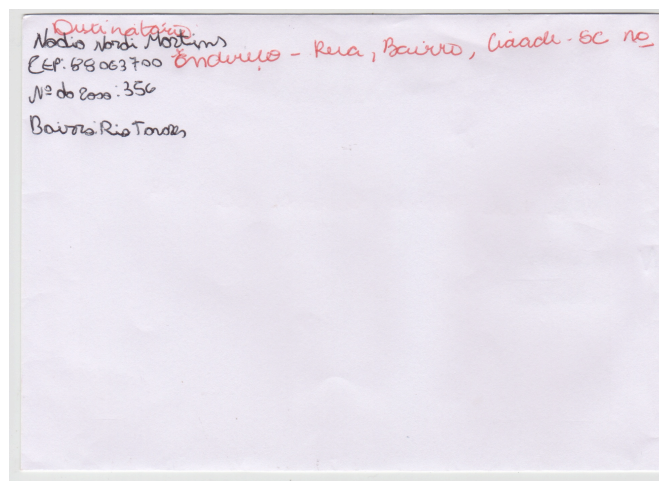 Destinatário
Nadia Nardi Martins
CEP: 88063700 Endereço - Rua, Bairro, Cidade - SC no
Nº da casa: 356
Bairro: Rio Tavares